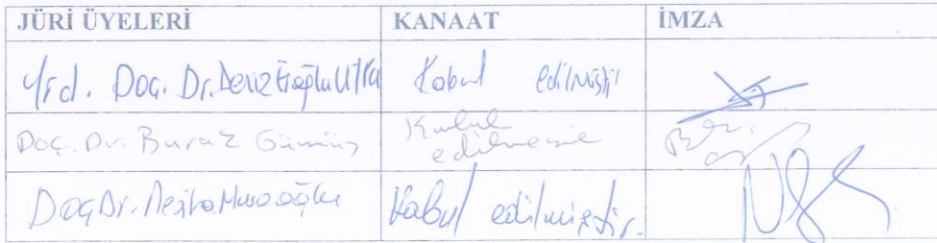 JÜRİ ÜYELERİ KANAAT İMZA
Yrd. Doç. Dr. Deniz Eroğlu Utku Kabul edilmiştir
Doç. Dr. Burak Gümüş Kabul
edilmesine
Doç.Dr. Nesiha Kabul edilmiştir.